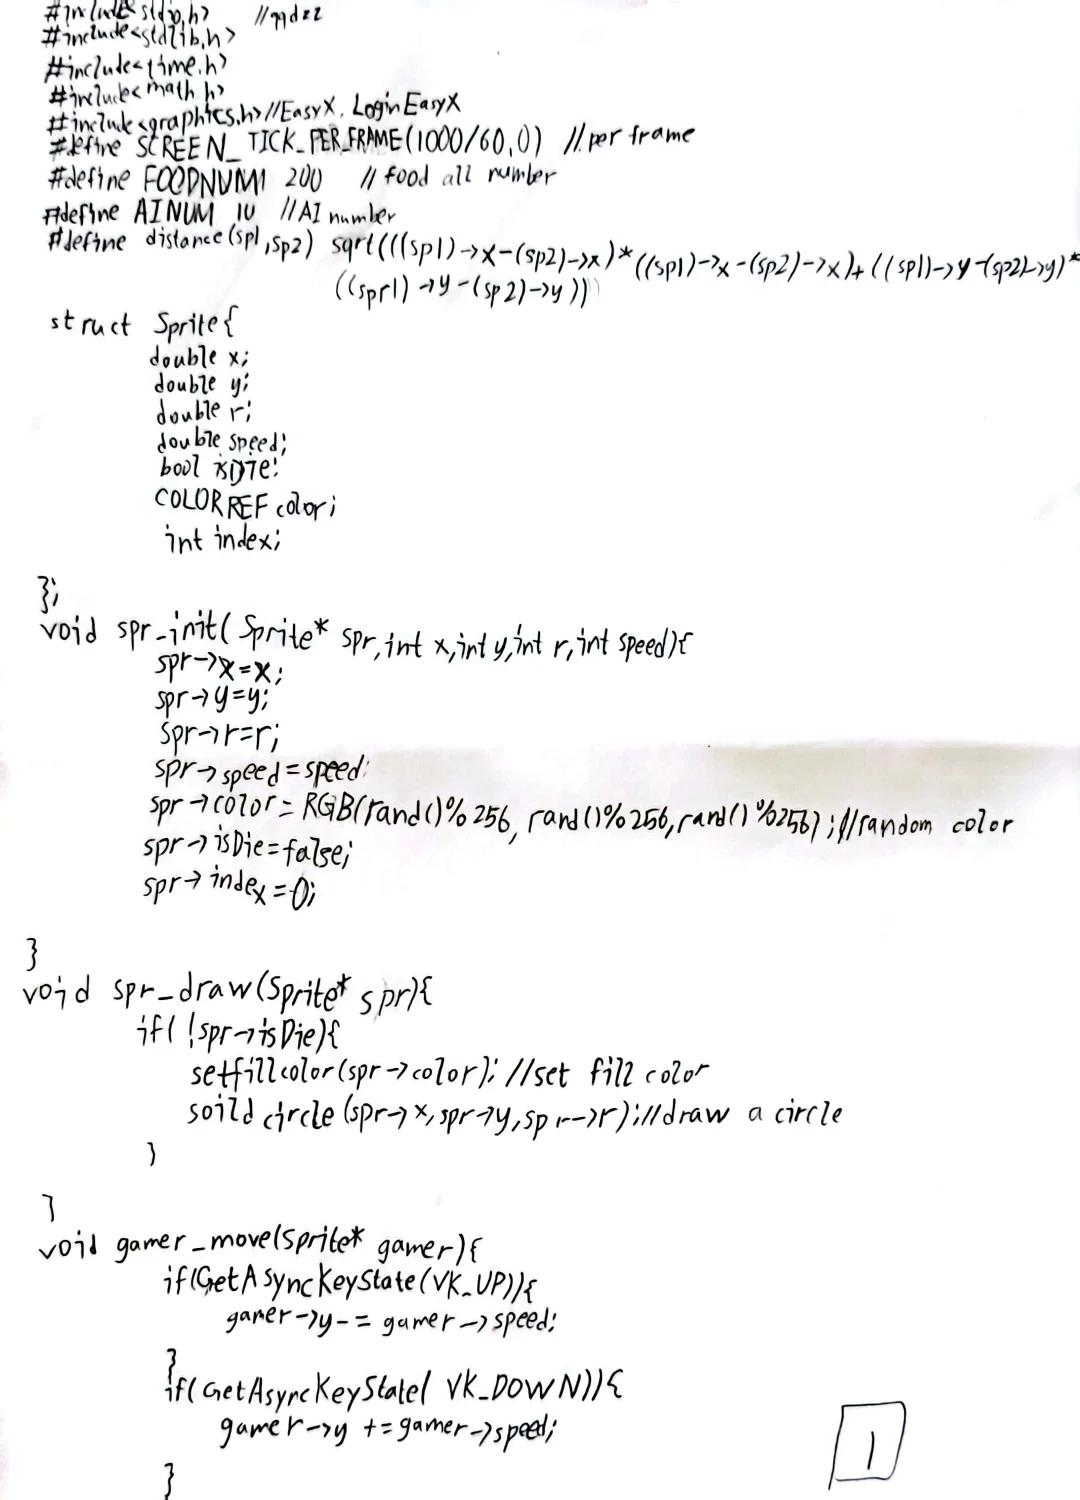 #include<stdio.h> //qqdzz
#include<stdlib.h>
#include<time.h>
#include<math.h>
#include<graphics.h>//EasyX, Login EasyX
#define SCREEN_TICK_PER_FRAME(1000/60,0) //per frame
#define FOODNUM 200 // food all number
#define AINUM 10 //AI number
#define distance(sp1,sp2) sqrt(((sp1)->x-(sp2)->x)*((sp1)->x-(sp2)->x)+((sp1)->y-(sp2)->y)*
((spr1)->y-(sp2)->y))
struct Sprite{
double x;
double y;
double r;
double speed;
bool isDie;
COLORREF color;
int index;
};
void spr_init(Sprite* spr,int x,int y,int r,int speed){
spr->x=x;
spr->y=y;
spr->r=r;
spr->speed=speed;
spr->color=RGB(rand()%256,rand()%256,rand()%256);//random color
spr->isDie=false;
spr->index=0;
}
void spr_draw(Sprite* spr){
if(!spr->isDie){
setfillcolor(spr->color);//set fill color
soild circle(spr->x,spr->y,spr->r);//draw a circle
}
}
void gamer_move(Sprite* gamer){
if(GetAsyncKeyState(VK_UP)){
gamer->y-=gamer->speed;
}
if(GetAsyncKeyState(VK_DOWN)){
gamer->y +=gamer->speed;
}
1